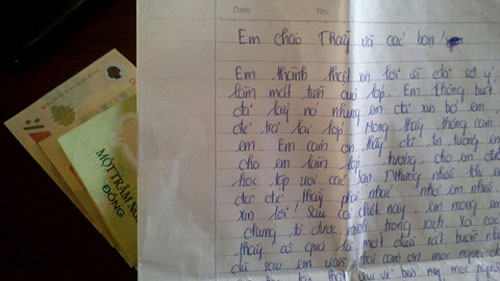 Date No.
Em chào Thầy và các bạn!
Em thành thật xin lỗi vì đã sơ ý
làm mất tiền quỹ lớp. Em không biết
đã lấy nó nhưng em đã xin bố em
để trả lại lớp. Mong thầy thông cảm
em. Em cảm ơn thầy đã tin tưởng em
cho em làm lớp trưởng, cho em
học tập với các bạn. Nhưng nhiều khi em
đã để thầy phải nhắc nhở em nhiều
xin lỗi! Sau cái chết này, em mong
chứng tỏ được mình trong sạch. Xa các
thầy cô quả là một điều rất buồn
dù sao em cảm ơn mọi người
MỘT TRĂM
ĐỒNG